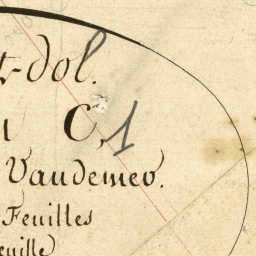 t-dol.
C, 1
Vaudemer.
Feuilles
euille